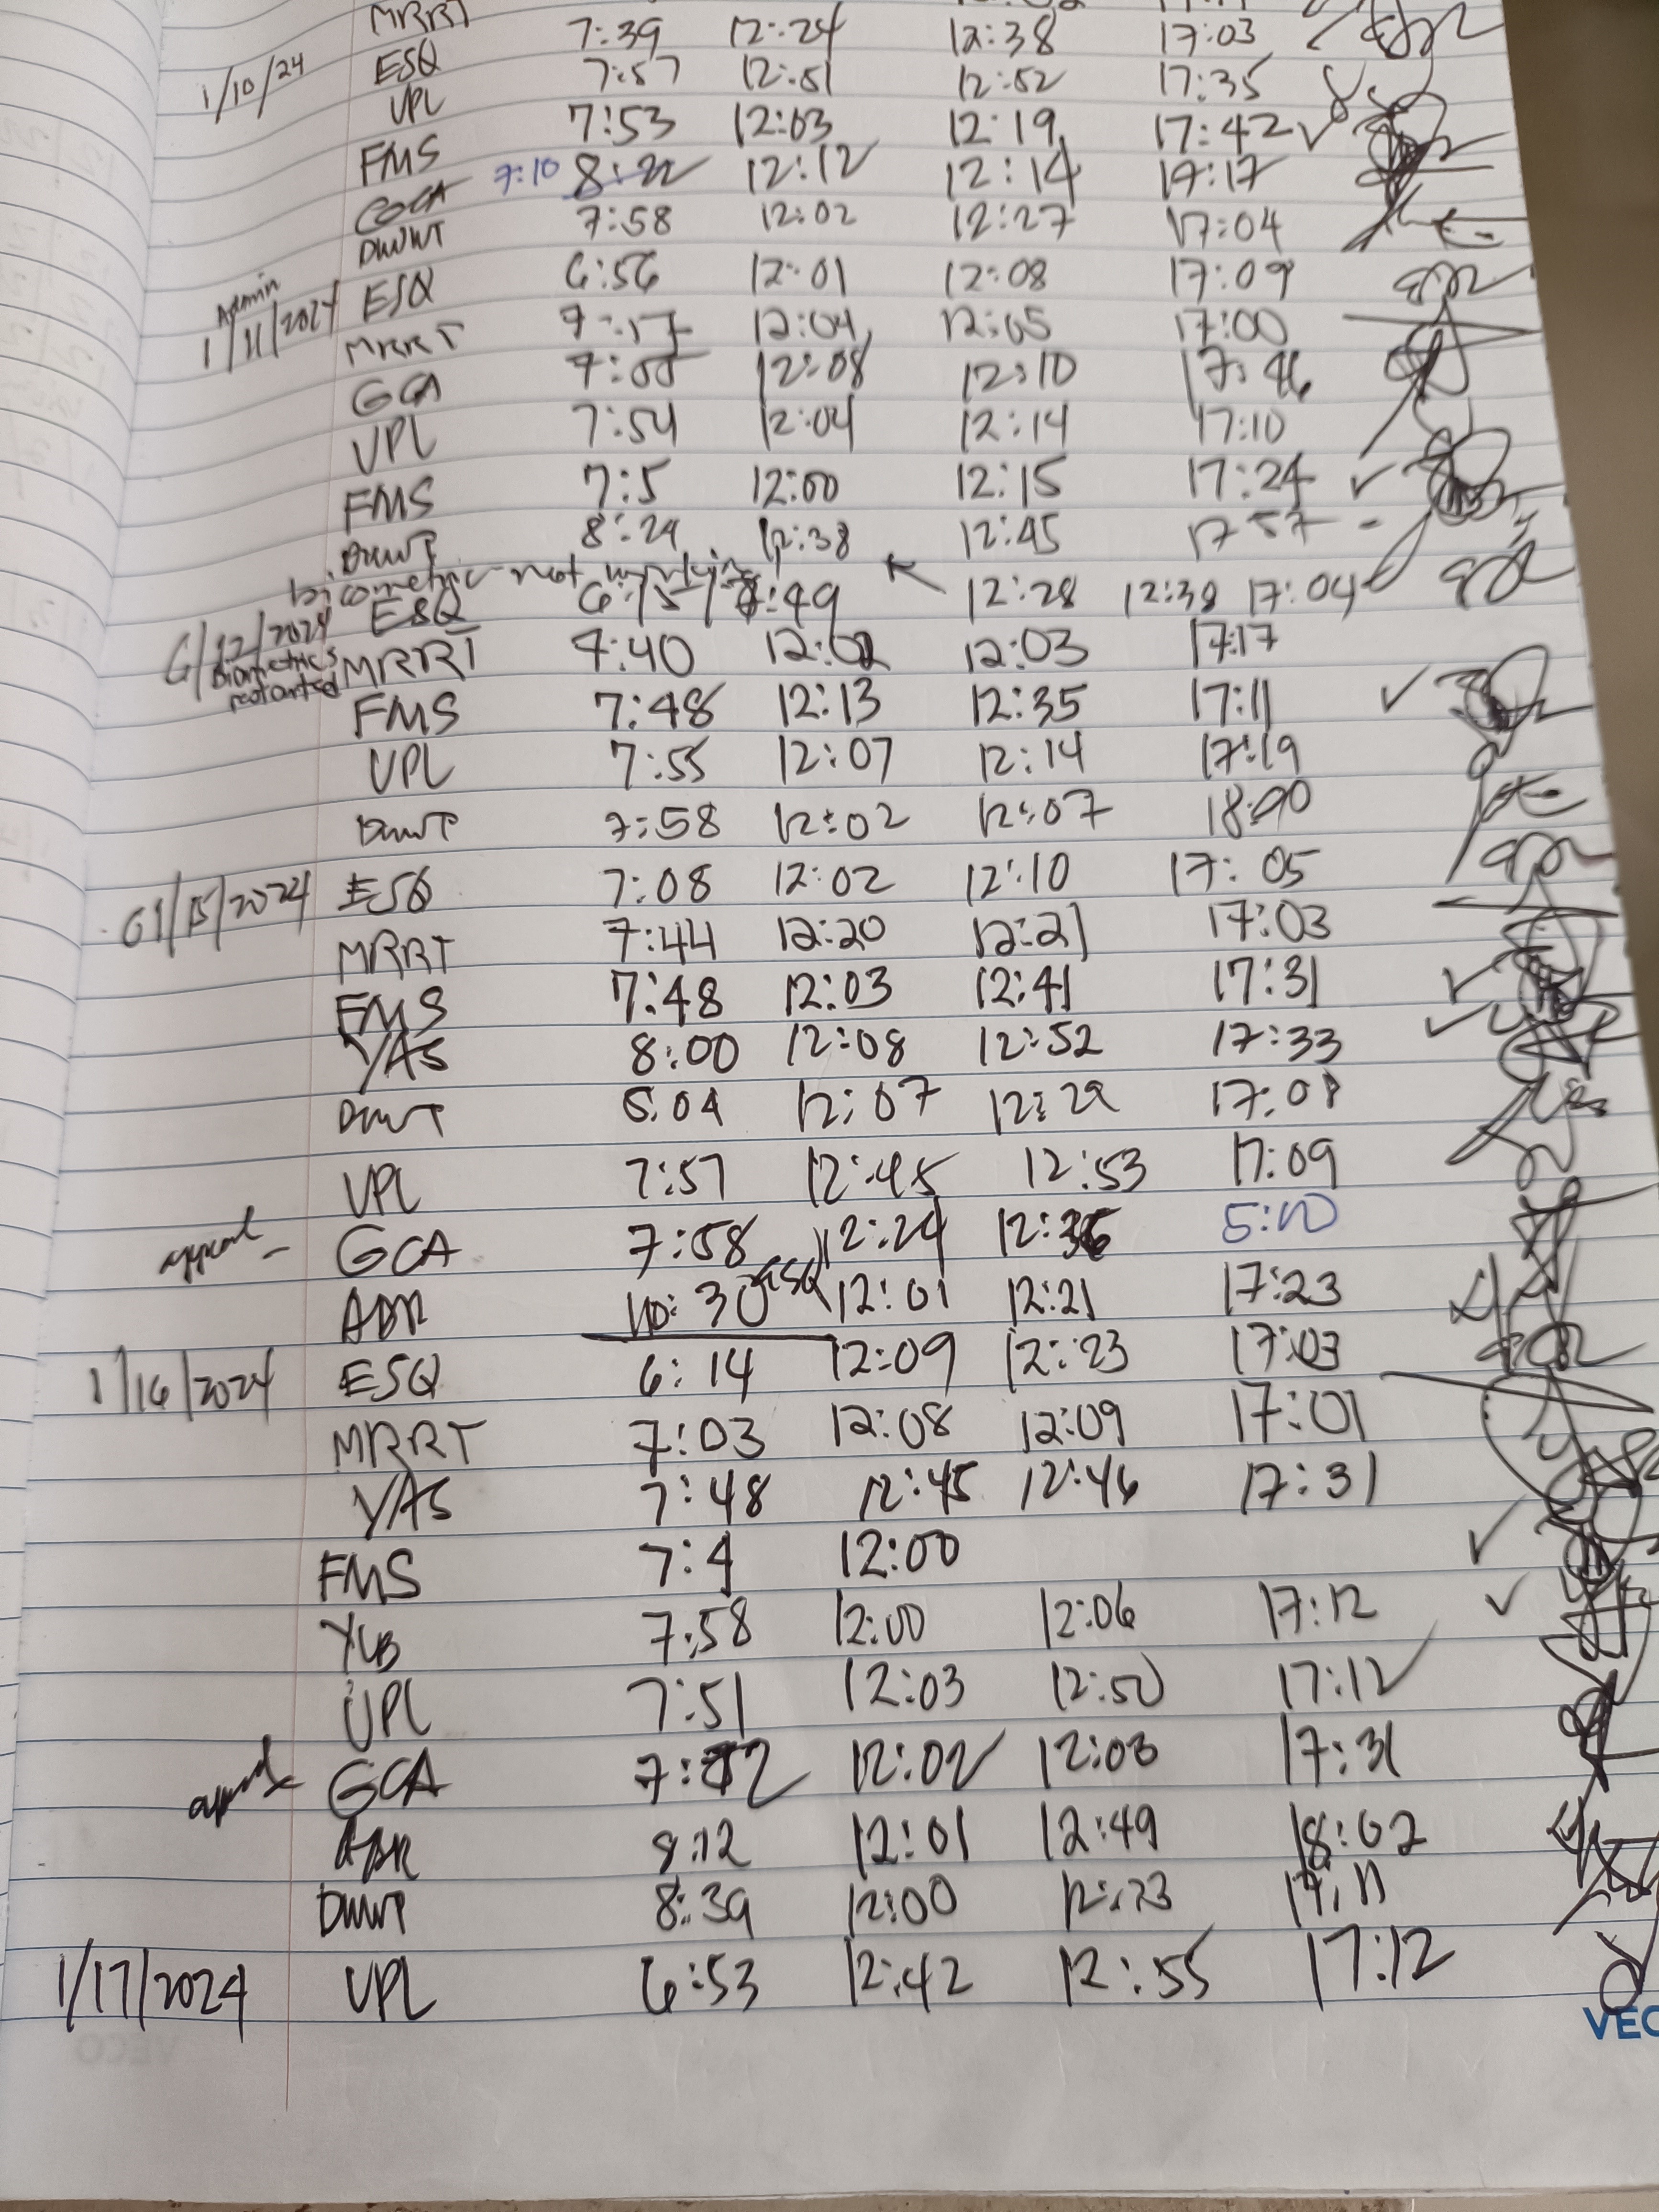 MRRT 7:39 12:24 12:38 17:03
1/10/24 ESQ 7:57 12:51 12:52 17:35
VPL 7:53 12:03 12:19 17:42
FMS 7:10 8:22 12:12 12:14 17:17
7:58 12:02 12:27 17:04
DWWT
Admin
1/11/2024 ESQ 6:56 12:01 12:08 17:09
MRRT 7:17 12:04 12:05 17:00
GCA 7:00 12:08 12:10 17:46
VPL 7:54 12:04 12:14 17:10
FMS 7:5 12:00 12:15 17:24
DWWT 8:29 12:38 12:45 17 57
biometric not working
ESQ 6:15 / 7:49 12:28 12:38 17:04
/12/2024
Biometrics
restarted
MRRT 7:40 12:02 12:03 17:17
FMS 7:48 12:13 12:35 17:11
VPL 7:55 12:07 12:14 17:19
DWWT 7:58 12:02 12:07 18:00
01/15/2024 ESQ 7:08 12:02 12:10 17:05
MRRT 7:44 12:20 12:21 17:03
FMS 7:48 12:03 12:41 17:31
YAS 8:00 12:08 12:52 17:33
DWWT 8:04 12:07 12:29 17:01
VPL 7:57 12:45 12:53 17:09
GCA 7:58 12:24 12:36 5:10
ADR 10:30 ESQ 12:01 12:21 17:23
1/16/2024 ESQ 6:14 12:09 12:23 17:03
MRRT 7:03 12:08 12:09 17:01
YAS 7:48 12:45 12:46 17:31
FMS 7:4 12:00
YLB 7:58 12:00 12:06 17:12
VPL 7:51 12:03 12:50 17:12
GCA 7:42 12:02 12:03 17:31
ADR 8:12 12:01 12:49 18:02
DWWT 8:39 12:00 12:23 17:11
1/17/2024 VPL 6:53 12:42 12:55 17:12
VEC